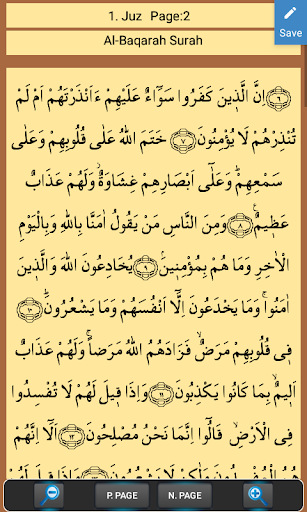 1. Juz Page:2
Save
Al-Baqarah Surah
﴿٦﴾ اِنَّ الَّذ۪ينَ كَفَرُوا سَوَٓاءٌ عَلَيْهِمْ ءَاَنْذَرْتَهُمْ اَمْ لَمْ
تُنْذِرْهُمْ لَا يُؤْمِنُونَ ﴿٧﴾ خَتَمَ اللّٰهُ عَلٰى قُلُوبِهِمْ وَعَلٰى
سَمْعِهِمْۜ وَعَلٰٓى اَبْصَارِهِمْ غِشَاوَةٌۘ وَلَهُمْ عَذَابٌ
عَظ۪يمٌ۟ ﴿٨﴾ وَمِنَ النَّاسِ مَنْ يَقُولُ اٰمَنَّا بِاللّٰهِ وَبِالْيَوْمِ
الْاٰخِرِ وَمَا هُمْ بِمُؤْمِن۪ينَۢ ﴿٩﴾ يُخَادِعُونَ اللّٰهَ وَالَّذ۪ينَ
اٰمَنُواۚ وَمَا يَخْدَعُونَ اِلَّٓا اَنْفُسَهُمْ وَمَا يَشْعُرُونَۜ ﴿١٠﴾
ف۪ي قُلُوبِهِمْ مَرَضٌۙ فَزَادَهُمُ اللّٰهُ مَرَضاًۚ وَلَهُمْ عَذَابٌ
اَل۪يمٌۙ بِمَا كَانُوا يَكْذِبُونَ ﴿١١﴾ وَاِذَا ق۪يلَ لَهُمْ لَا تُفْسِدُوا
فِي الْاَرْضِۙ قَالُٓوا اِنَّمَا نَحْنُ مُصْلِحُونَ ﴿١٢﴾ اَلَٓا اِنَّهُمْ
P. PAGE
N. PAGE